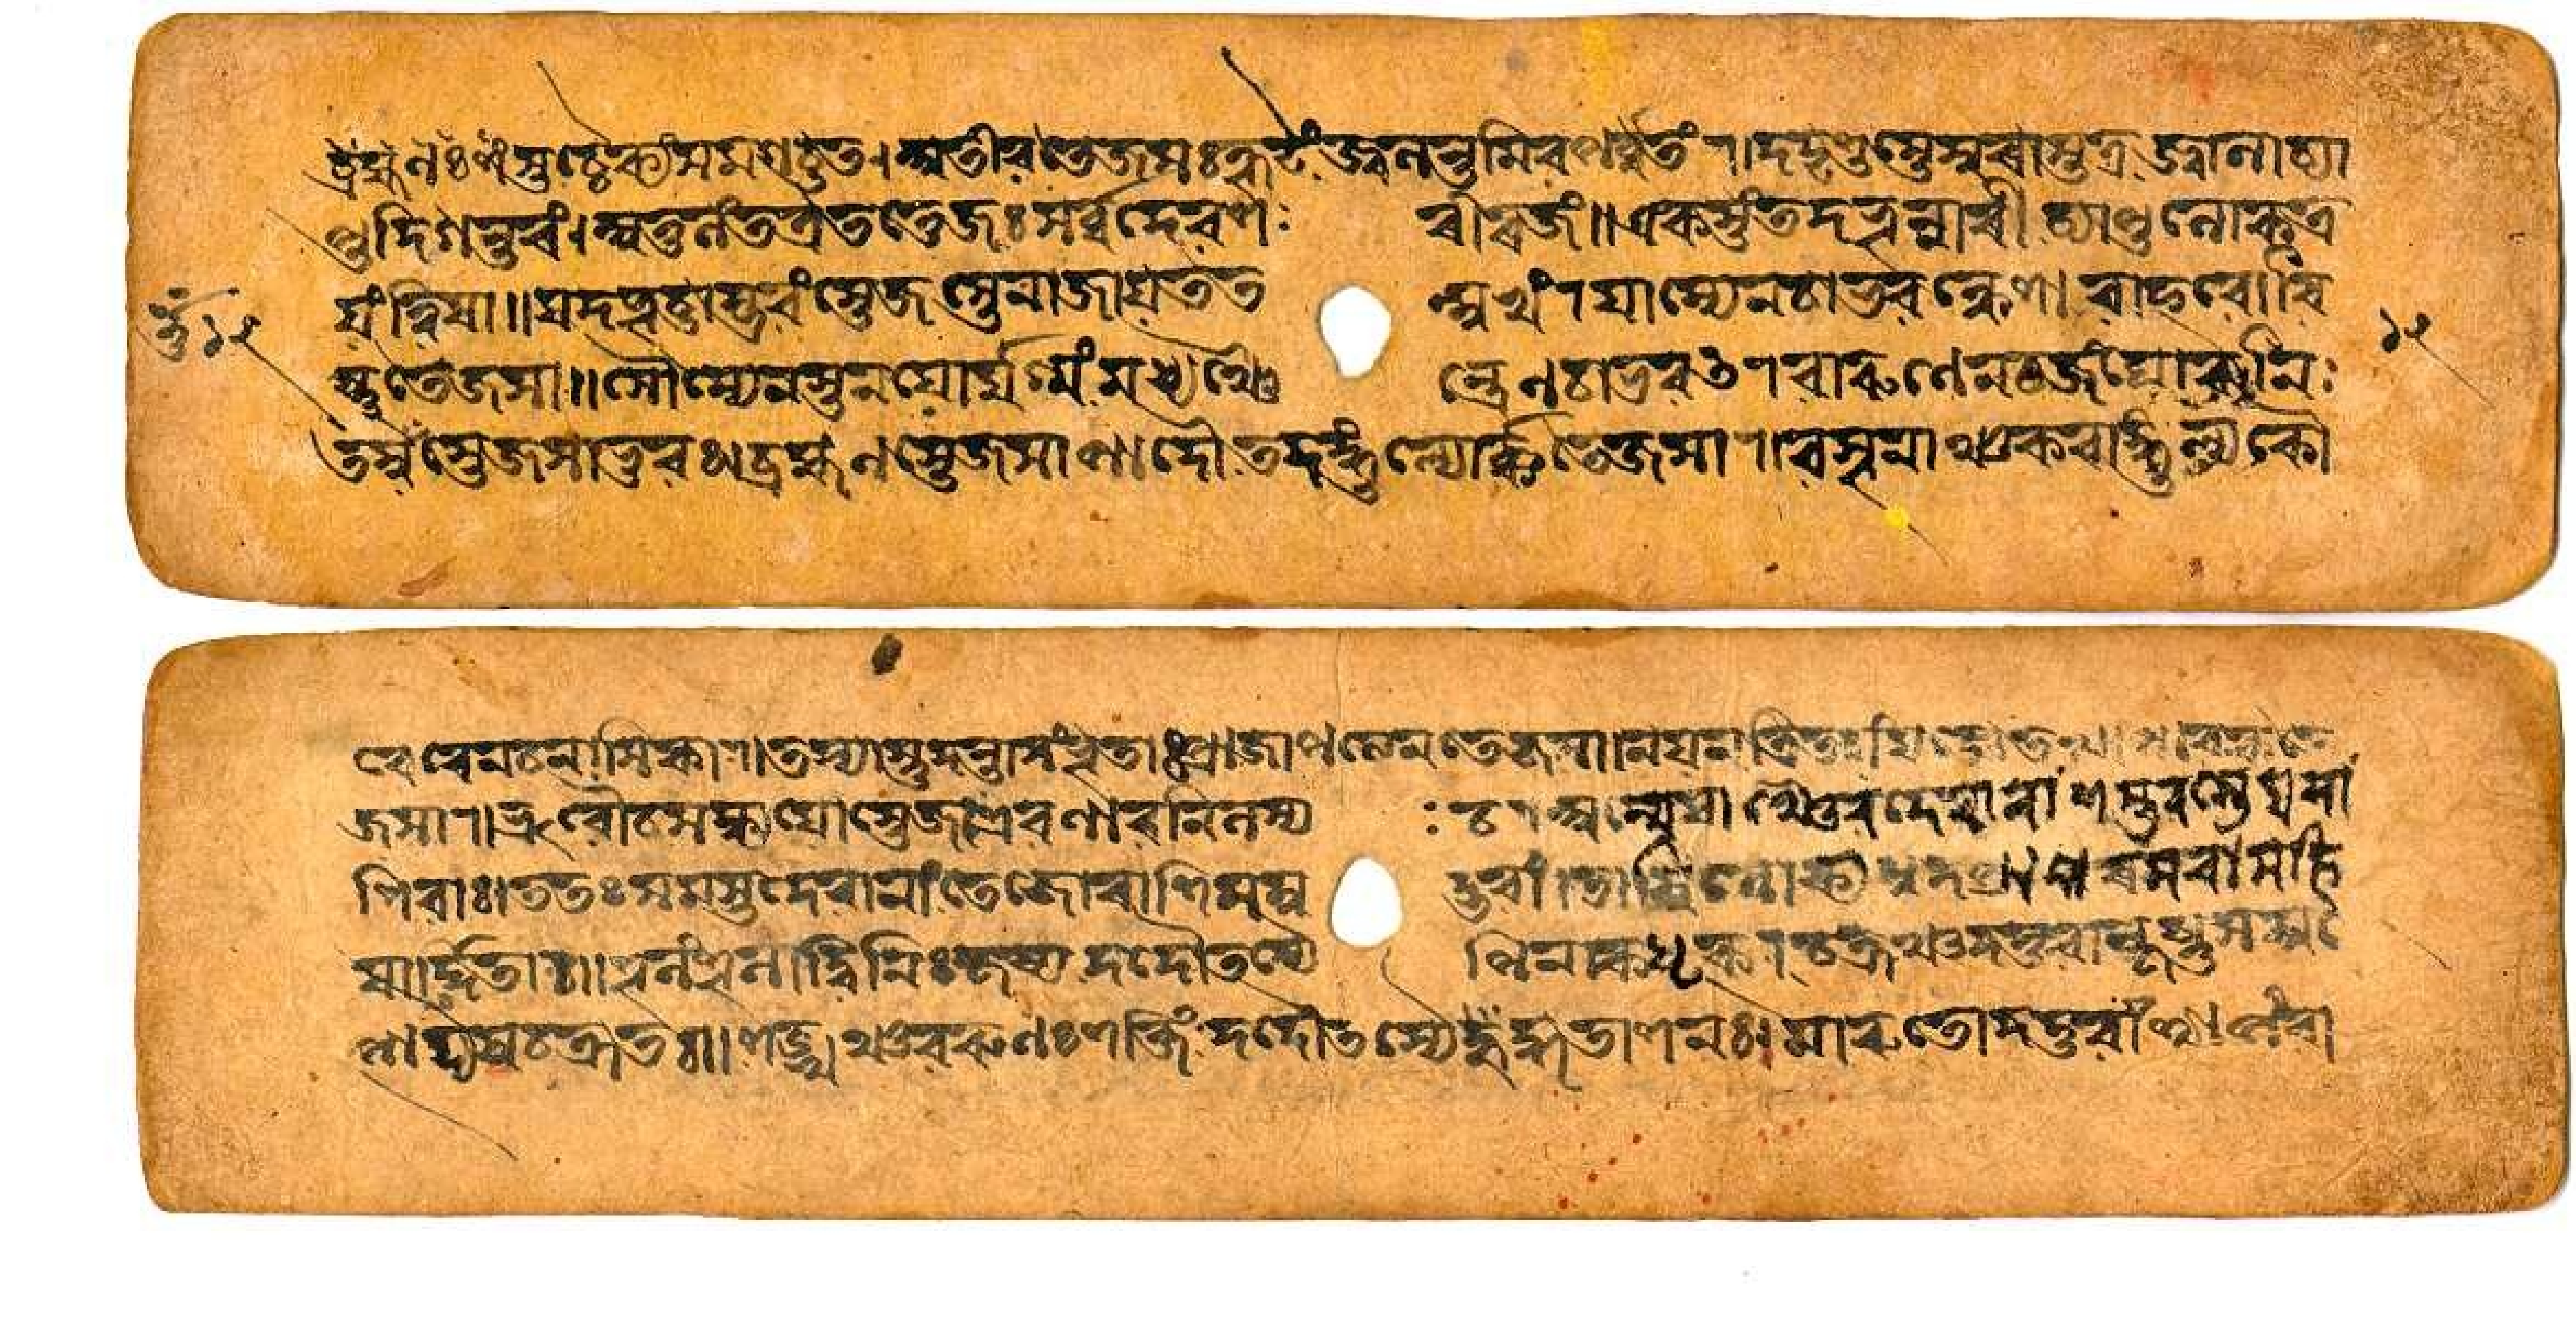 ত্রহ্মণঃ পংসুচ্চৈক্যং সমগচ্ছত। অতীব তেজসঃ কূটং জ্বলন্তমিব পর্বতং। দদৃশুস্তে সুরাস্তত্র জ্বালাব্যা
প্তদিগন্তরং। অতুলং তত্র তত্তেজঃ সর্ব্বদেবশরীরজং॥ একস্থং তদভূন্নারী ব্যাপ্তলোকত্র
যং ত্বিষা॥ যদভূচ্ছাম্ভবং তেজস্তেনাজায়ত তন্মুখং। যাম্যেন চাভবন্কেশা বাহবো বি
ষ্ণুতেজসা॥ সৌম্যেন স্তনয়োর্যুগ্মং মধ্যং চৈন্দ্রেণ চাভবৎ। বারুণেন চ জংঘোরূ নি
তম্বস্তেজসা ভুবঃ। ব্রহ্মণস্তেজসা পাদৌ তদঙ্গুল্যোর্ক্কতেজসা। বসূনাঞ্চ করাঙ্গুল্যঃ কৌ
বেরেণ চ নাসিকা। তস্যাস্তু দন্তাঃ সংভূতাঃ প্রাজাপত্যেন তেজসা। নয়নত্রিতয়ং তথা পাবকতে
জসা। ভ্রুবৌ চ সন্ধ্যয়োস্তেজঃ শ্রবণাবনিলস্য চ। অন্যেষাঞ্চৈব দেবানাং সম্ভবস্তেজসাং
শিবাঃ। ততঃ সমস্তদেবানাং তেজোরাশিসমুদ্ভবাং। তাং বিলোক্য মুদং প্রাপুরমরা মহি
ষার্দ্দিতাঃ॥ শূলং শূলাদ্বিনিঃকৃষ্য দদৌ তস্যৈ পিনাকধৃক্। চক্রঞ্চ দত্তবান্কৃষ্ণঃ সমুৎ
পাট্য স্বচক্রতঃ। শঙ্খঞ্চ বরুণঃ শক্তিং দদৌ তস্যৈ হুতাশনঃ। মারুতো দত্তবাংশ্চাপং বা
১২
১২